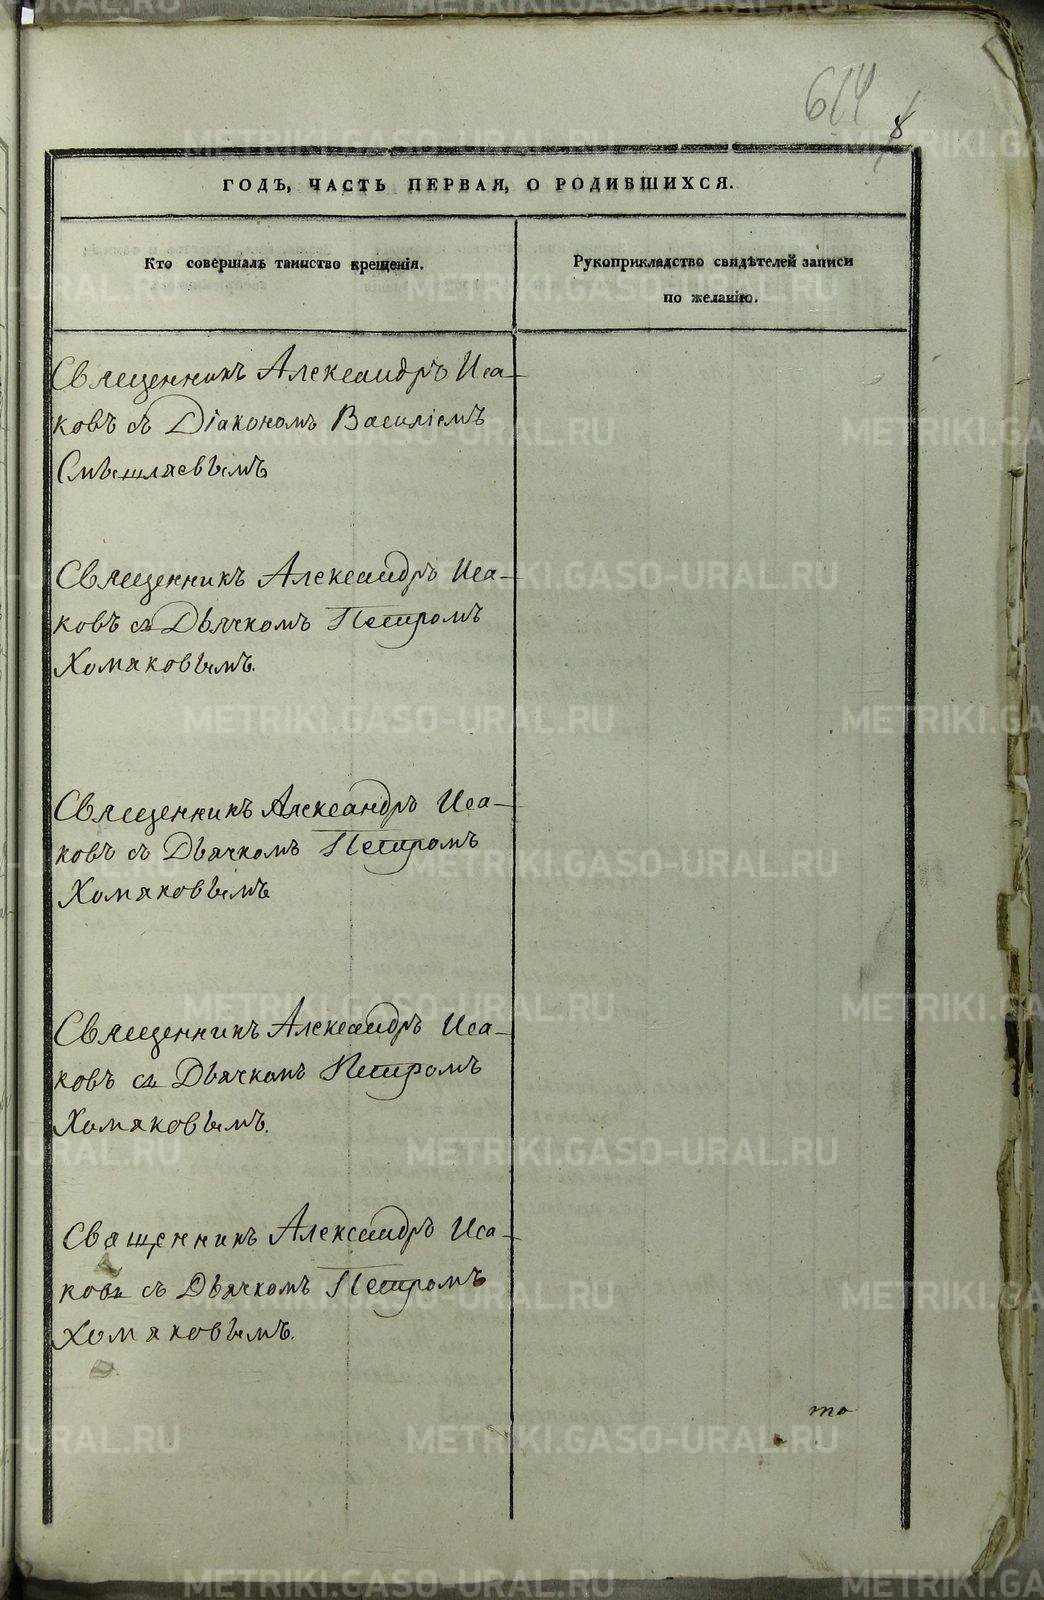 614
8
ГОДЪ, ЧАСТЬ ПЕРВАЯ, О РОДИВШИХСЯ.
Кто совершалъ таинство крещенія.
Рукоприкладство свидѣтелей записи
по желанію.
Священникъ Александръ Иса-
ковъ съ Діакономъ Василіемъ
Смышляевымъ
Священникъ Александръ Иса-
ковъ съ Дьячкомъ Петромъ
Хомяковымъ.
Священникъ Александръ Иса-
ковъ съ Дьячкомъ Петромъ
Хомяковымъ
Священникъ Александръ Иса-
ковъ съ Дьячкомъ Петромъ
Хомяковымъ.
Священникъ Александръ Иса-
ковъ съ Дьячкомъ Петромъ
Хомяковымъ.
то
METRIKI.GASO-URAL.RU